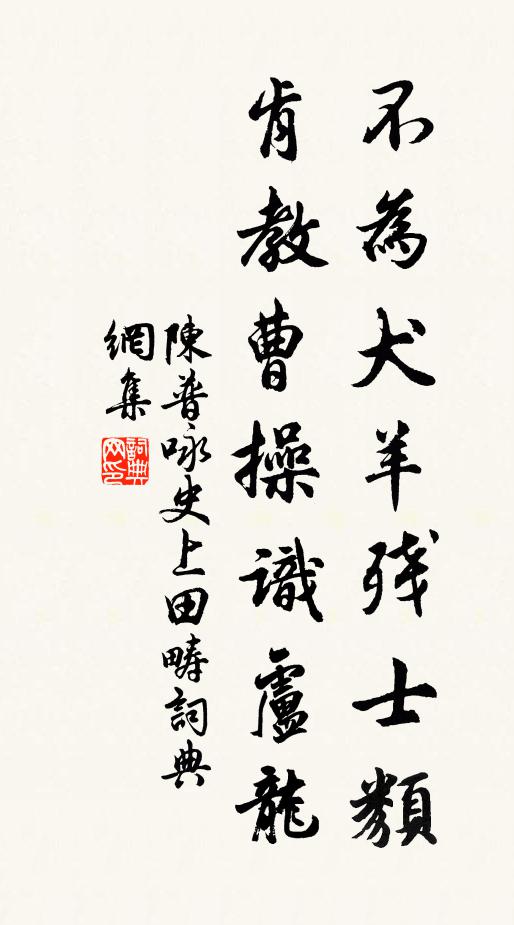 不為犬羊残士類
肯教曹操識盧龍
陳普咏史上田疇詞典
網集
詞典网印